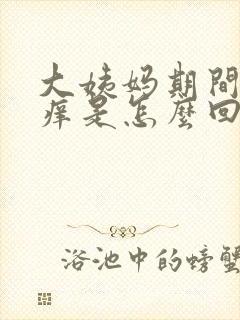 大姨妈期間
痒是怎麼回
浴池中的螃蟹